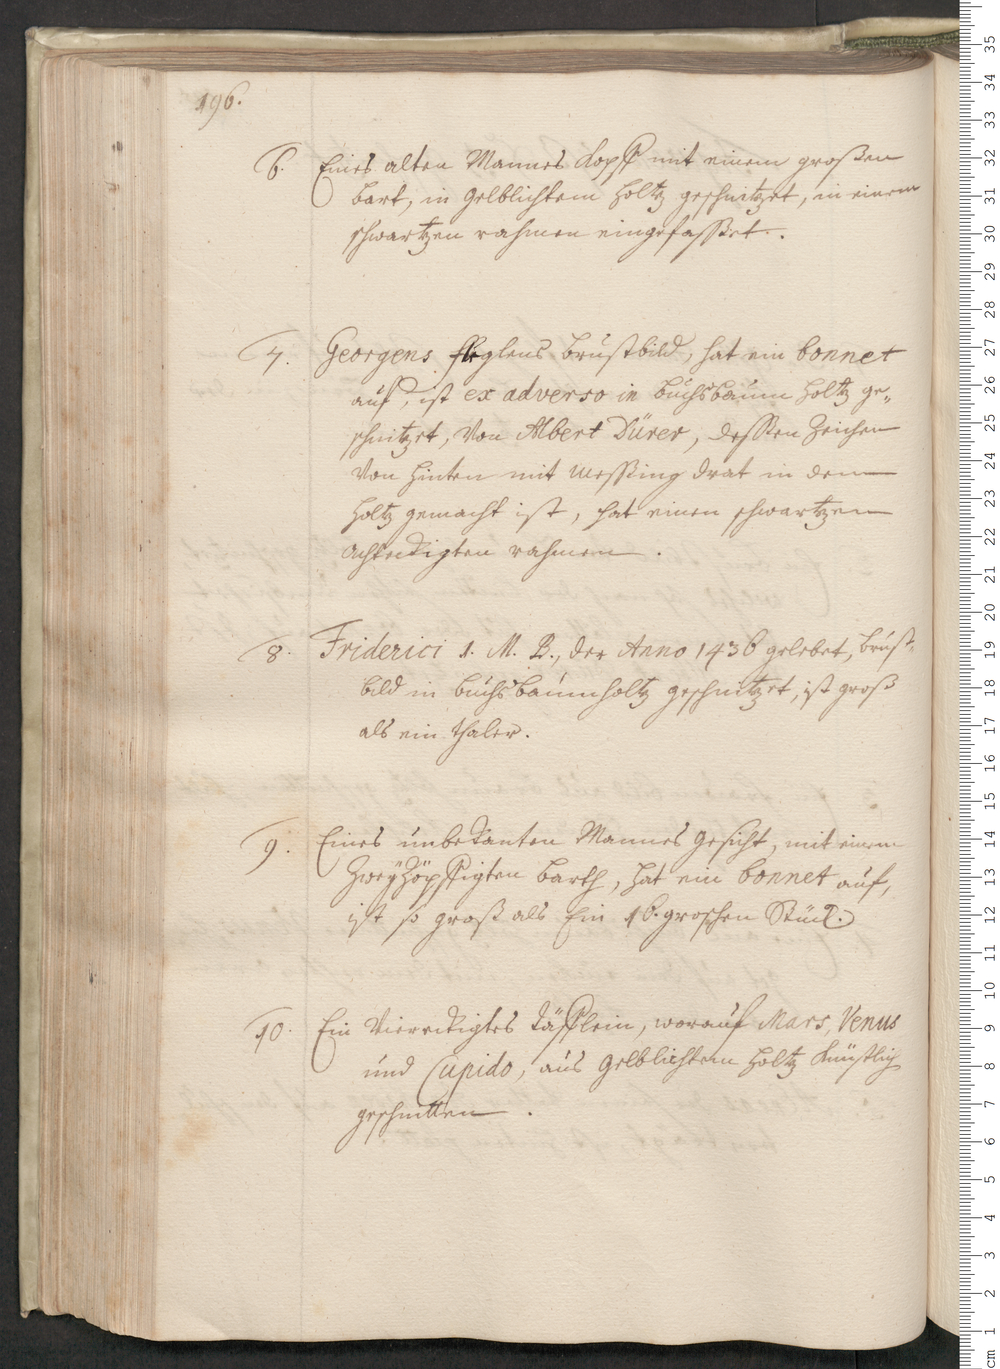 196.
6. Eines alten Mannes Kopff mit einem großen
bart, in gelblichtem holtz geschnitzet, in einem
schwartzen rahmen eingefasset.
7. Georgens brustbild, hat ein bonnet
auf, ist ex adverso in buchsbaum holtz ge„
schnitzet, von Albert Dürer, dessen Zeichen
von hinten mit messing drat in dem
holtz gemacht ist, hat einen schwartzen
achteckigten rahmen.
8. Friderici 1. M. B., der Anno 1436 gelebet, brust-
bild in buchsbaumholtz geschnitzet, ist groß
als ein thaler.
9. Eines unbekanten Mannes gesicht, mit einem
Zweyzöpffigten barth, hat ein bonnet auf,
ist so groß als Ein 16. groschen Stück.
10. Ein Viereckigtes täfflein, worauf Mars, Venus
und Cupido, aus gelblichtem holtz künstlich
geschnitten.